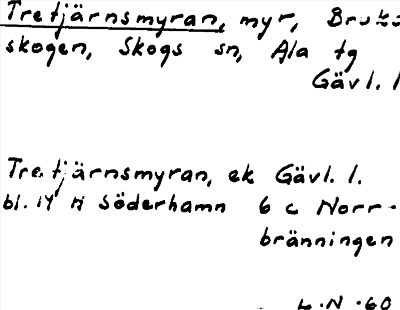 Tretjärnsmyran, myr, Bruks
skogen, Skogs sn, Ala tg
Gävl. l
Tretjärnsmyran, ek Gävl. l.
bl. 14 H Söderhamn 6 c Norr-
bränningen
L.N. 60